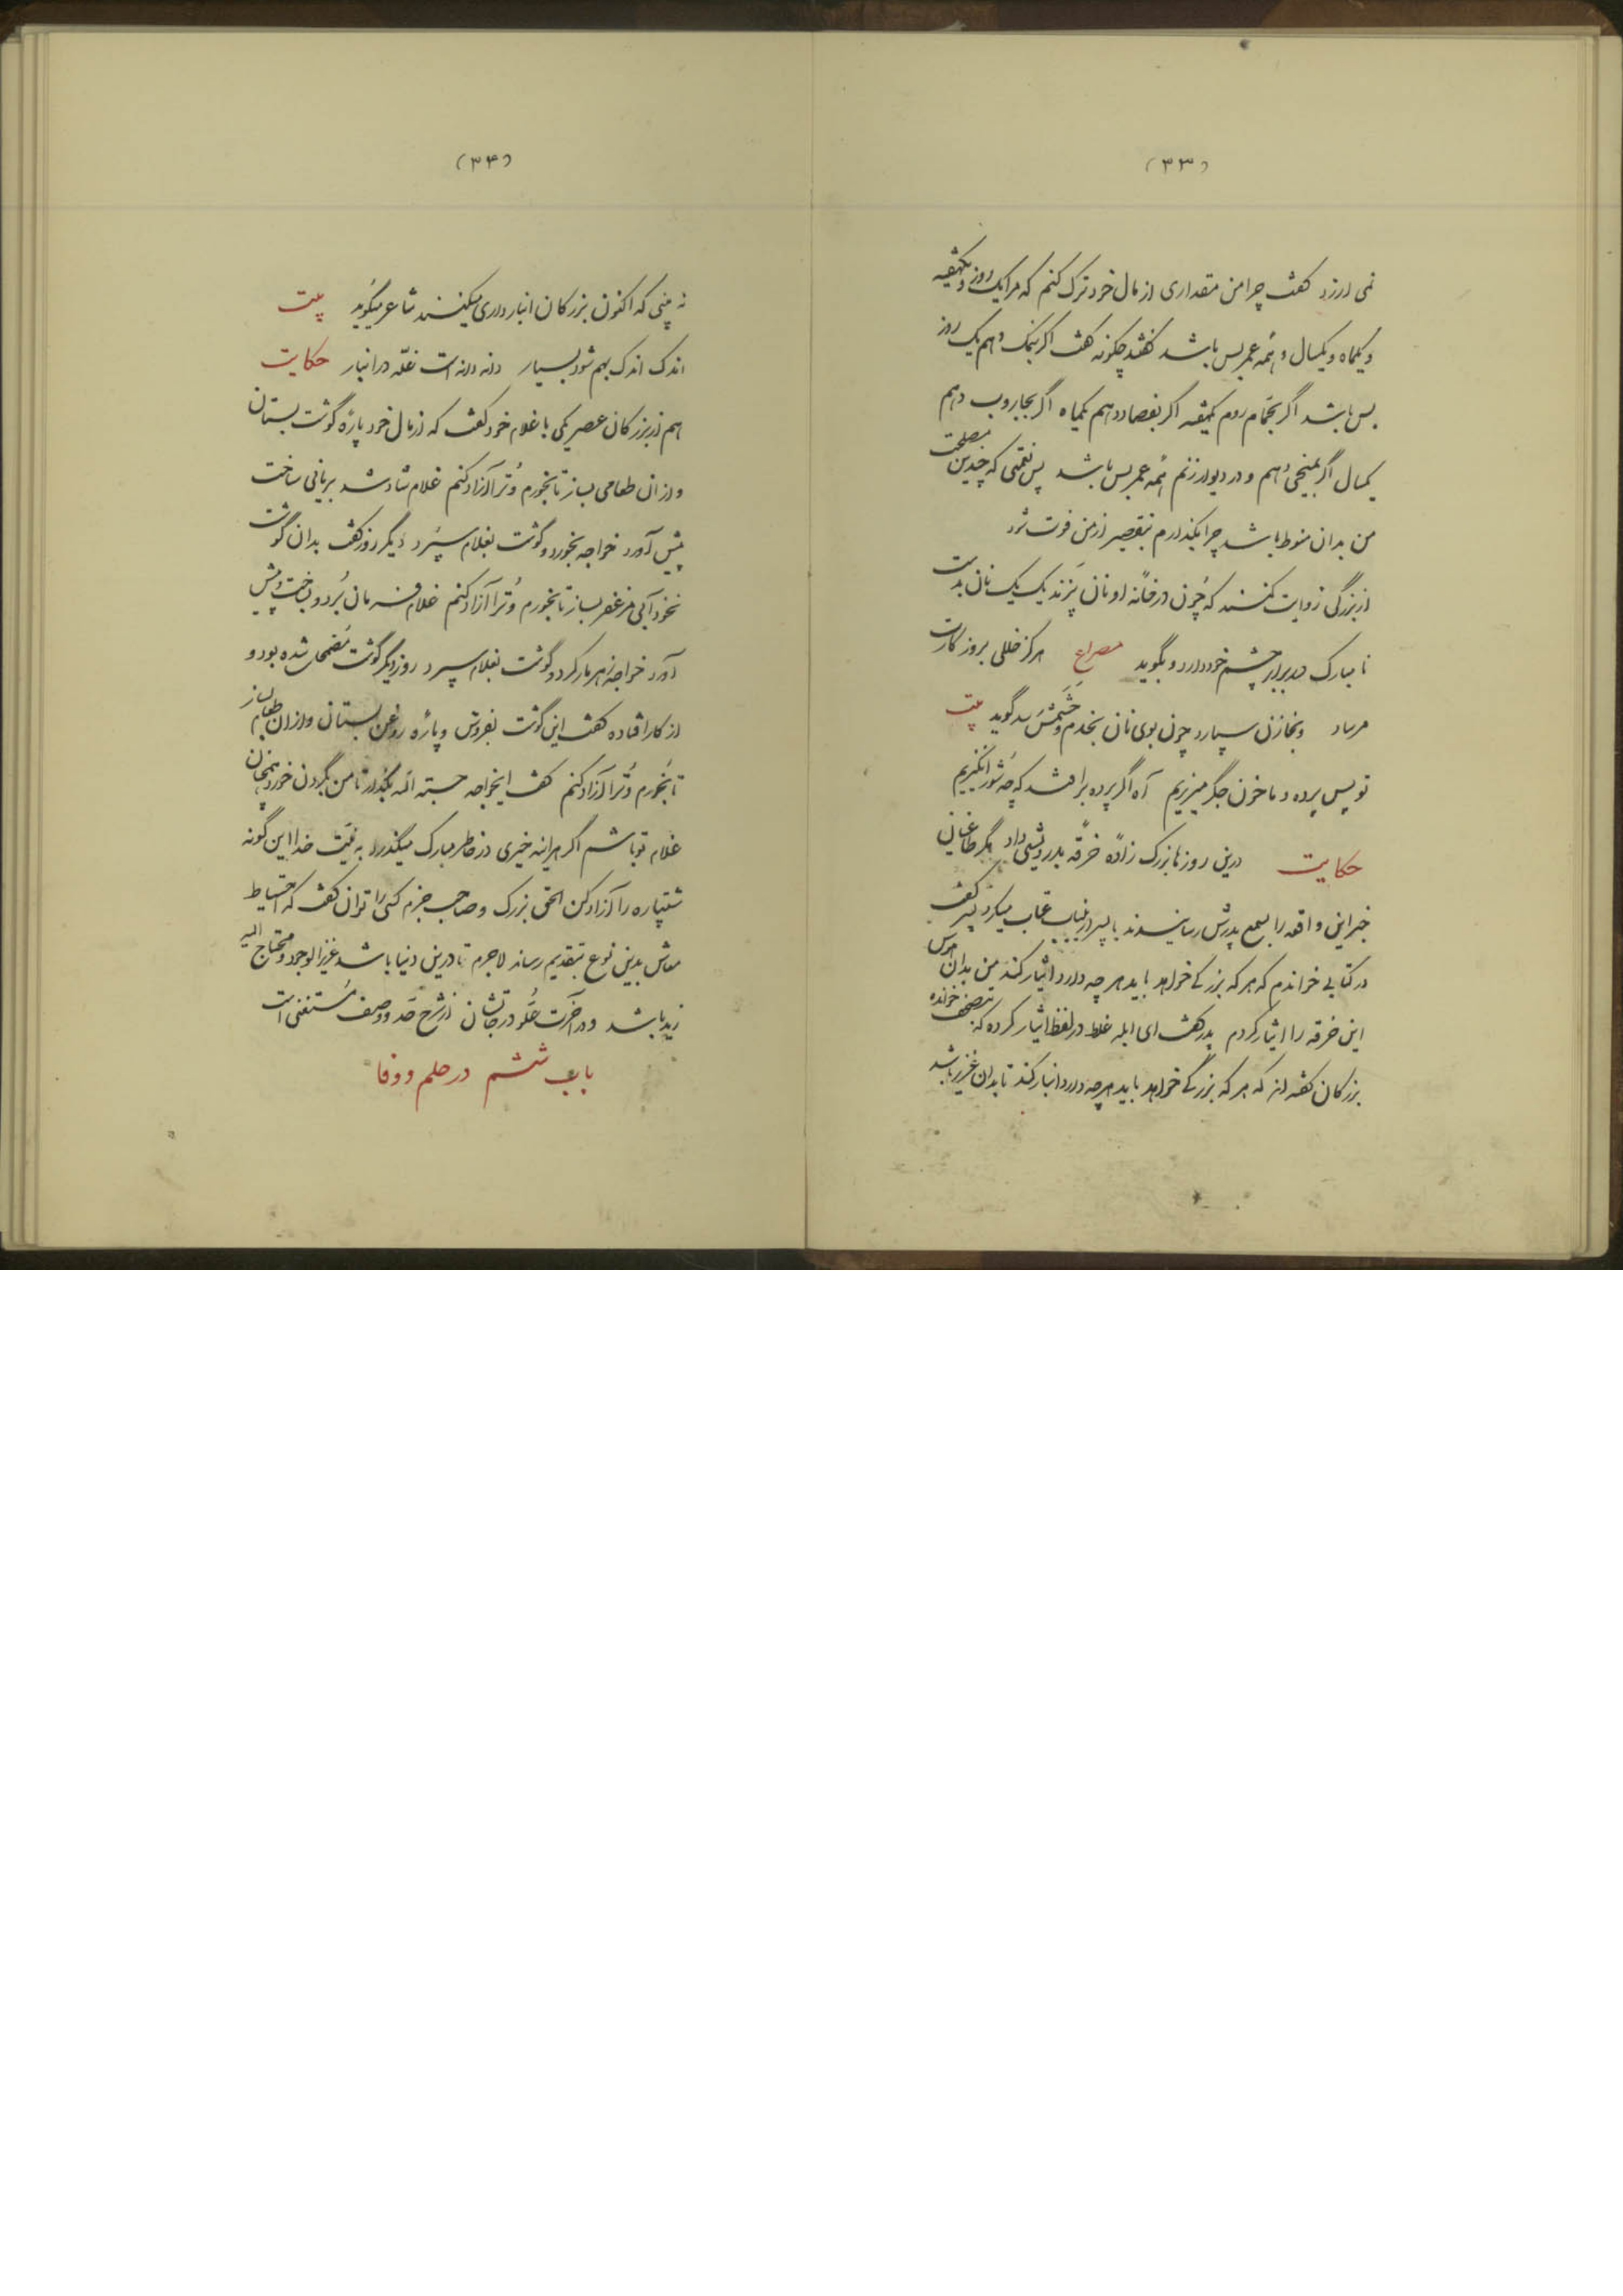 (۳۳)
نمی ارزد کفت چرا من مقداری از مال خود ترک کنم که مرا یک روز و یکهفته
و یکماه و یکسال و همه عمر بس باشد کفتند چکونه کفت اکر بنمک دهم یک روز
بس باشد اگر بحمام روم یکهفته اکر بفصاد دهم یکماه اگر بجاروب دهم
یکسال اگر بمیخی دهم و در دیوار زنم همه عمر بس باشد پس نعمتی که چندین مصلحت
من بدان منوط باشد چرا بگذارم بتقصیر از من فوت شود
از بزرگی روایت کنند که چون در خانه او نان پزند یک یک نان بدست
نا مبارک در برابر چشم خود دارد و بگوید مصراع هرکز خللی بروزکارت
مرساد و بخازن سپارد چون بوی نان بخدم و حشمش رسد گوید بیت
تو پس پرده و ما خون جگر میریزیم آه اگر پرده برافتد که چه شور انگیزیم
حکایت درین روزها بزرگ زاده خرقه بدرویشی داد مگر طاعنان
خبر این واقعه را بسمع پدرش رسانیدند با پسر در این باب عتاب میکرد پسر کفت
در کتابی خواندم که هر که بزرگی خواهد باید هر چه دارد ایثار کند من بدان هوس
این خرقه را ایثار کردم پدر کفت ای ابله غلط در لفظ ایثار کرده که بتصحیف خوانده
بزرکان کفته اند که هر که بزرگی خواهد باید هر چه دارد انبار کند تا بدان عزیز باشد
(۳۴)
نه بینی که اکنون بزرکان انبارداری میکنند شاعر میگوید بیت
اندک اندک بهم شود بسیار دانه دانه است غله در انبار حکایت
هم از بزرکان عصر یکی با غلام خود کفت که از مال خود پاره گوشت بستان
و از ان طعامی بساز تا بخورم و ترا آزاد کنم غلام شاد شد بریانی ساخت
پیش آورد خواجه بخورد و گوشت بغلام سپرد دیگر روز کفت بدان گوشت
نخودآبی مزعفر بساز تا بخورم و ترا آزاد کنم غلام فرمان برد و بساخت و پیش
آورد خواجه زهرمار کرد و گوشت بغلام سپرد روز دیگر گوشت مضمحل شده بود و
از کار افتاده کفت این گوشت بفروش و پاره روغن بستان و از ان طعام بساز
تا بخورم و ترا آزاد کنم کفت ایخواجه حسبة الله بگذار تا من بگردن خود همچنان
غلام تو باشم اگر هراینه خیری در خاطر مبارک میگذرد به نیت خدا این گونه
شتپاره را آزاد کن الحق بزرک و صاحب حزم کسی را توان کفت که احتیاط
معاش بدین نوع بتقدیم رساند لاجرم تا درین دنیا باشد عزیز الوجود و محتاج الیه
زید باشد و در آخرت علو درجاتشان از شرح حد و وصف مستغنی است
باب ششم در حلم و وفا